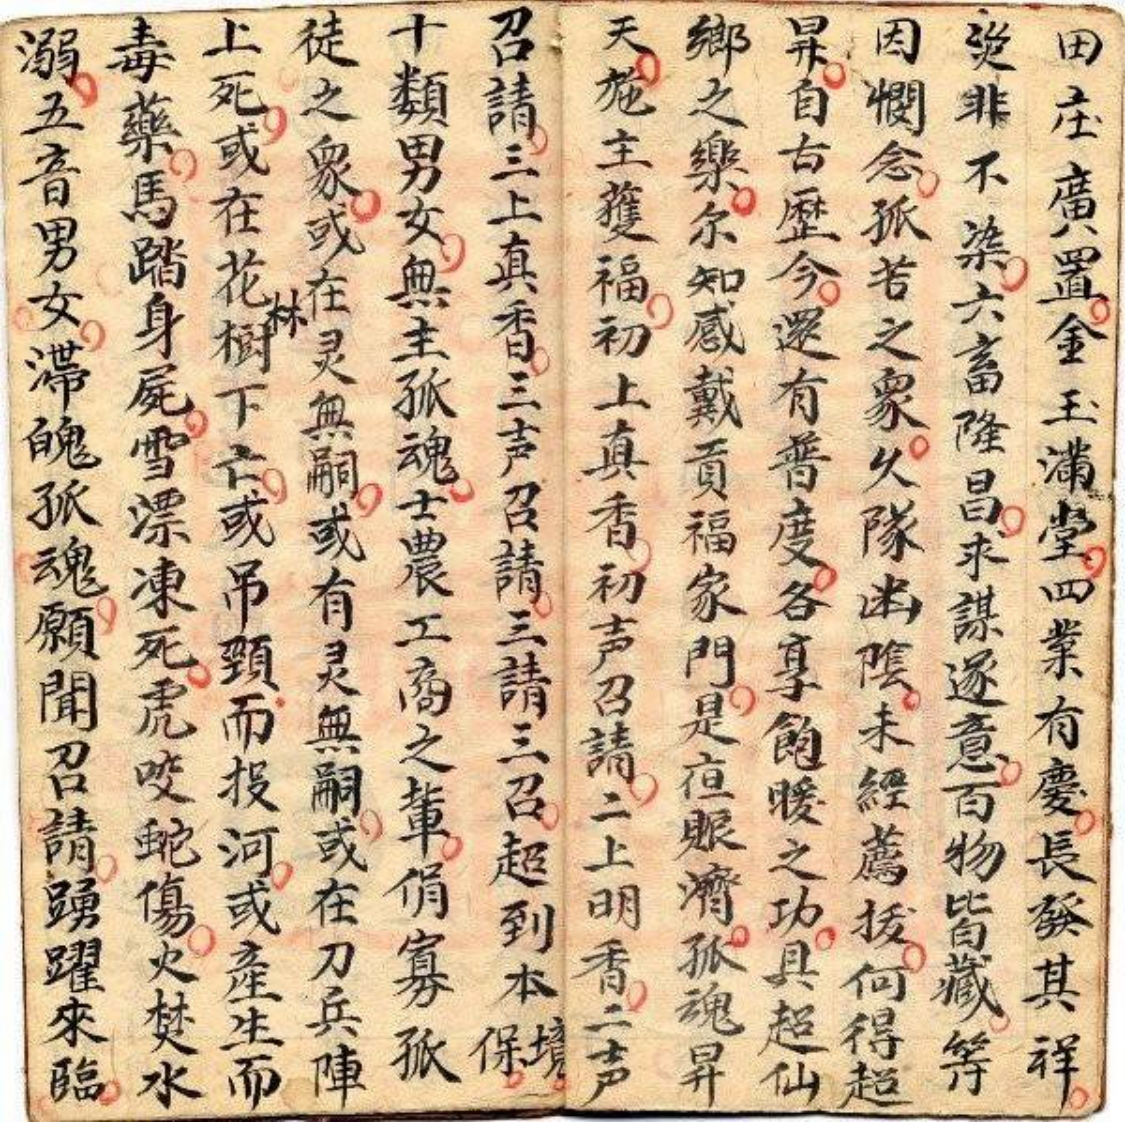 田庄廣置金玉滿堂四業有慶長發其祥
災非不染六畜隆昌求謀遂意百物皆藏等
因憫念孤苦之衆久隊幽陰未經薦拔何得超
昇自古歷今還有普度各享飽暖之功具超仙
鄉之樂尔知感戴貢福家門是夜賑濟孤魂昇
天施主獲福初上真香初声召請二上明香二声
召請三上真香三声召請三請三召超到本保境
十類男女無主孤魂士農工商之輩俏寡孤
徒之衆或在灵無嗣或有灵無嗣或在刀兵陣
上死或在花樹林下亡或吊頸而投河或產生而
毒藥馬踏身屍雪漂凍死虎咬蛇傷火焚水
溺五音男女滯魄孤魂願聞召請踴躍來臨